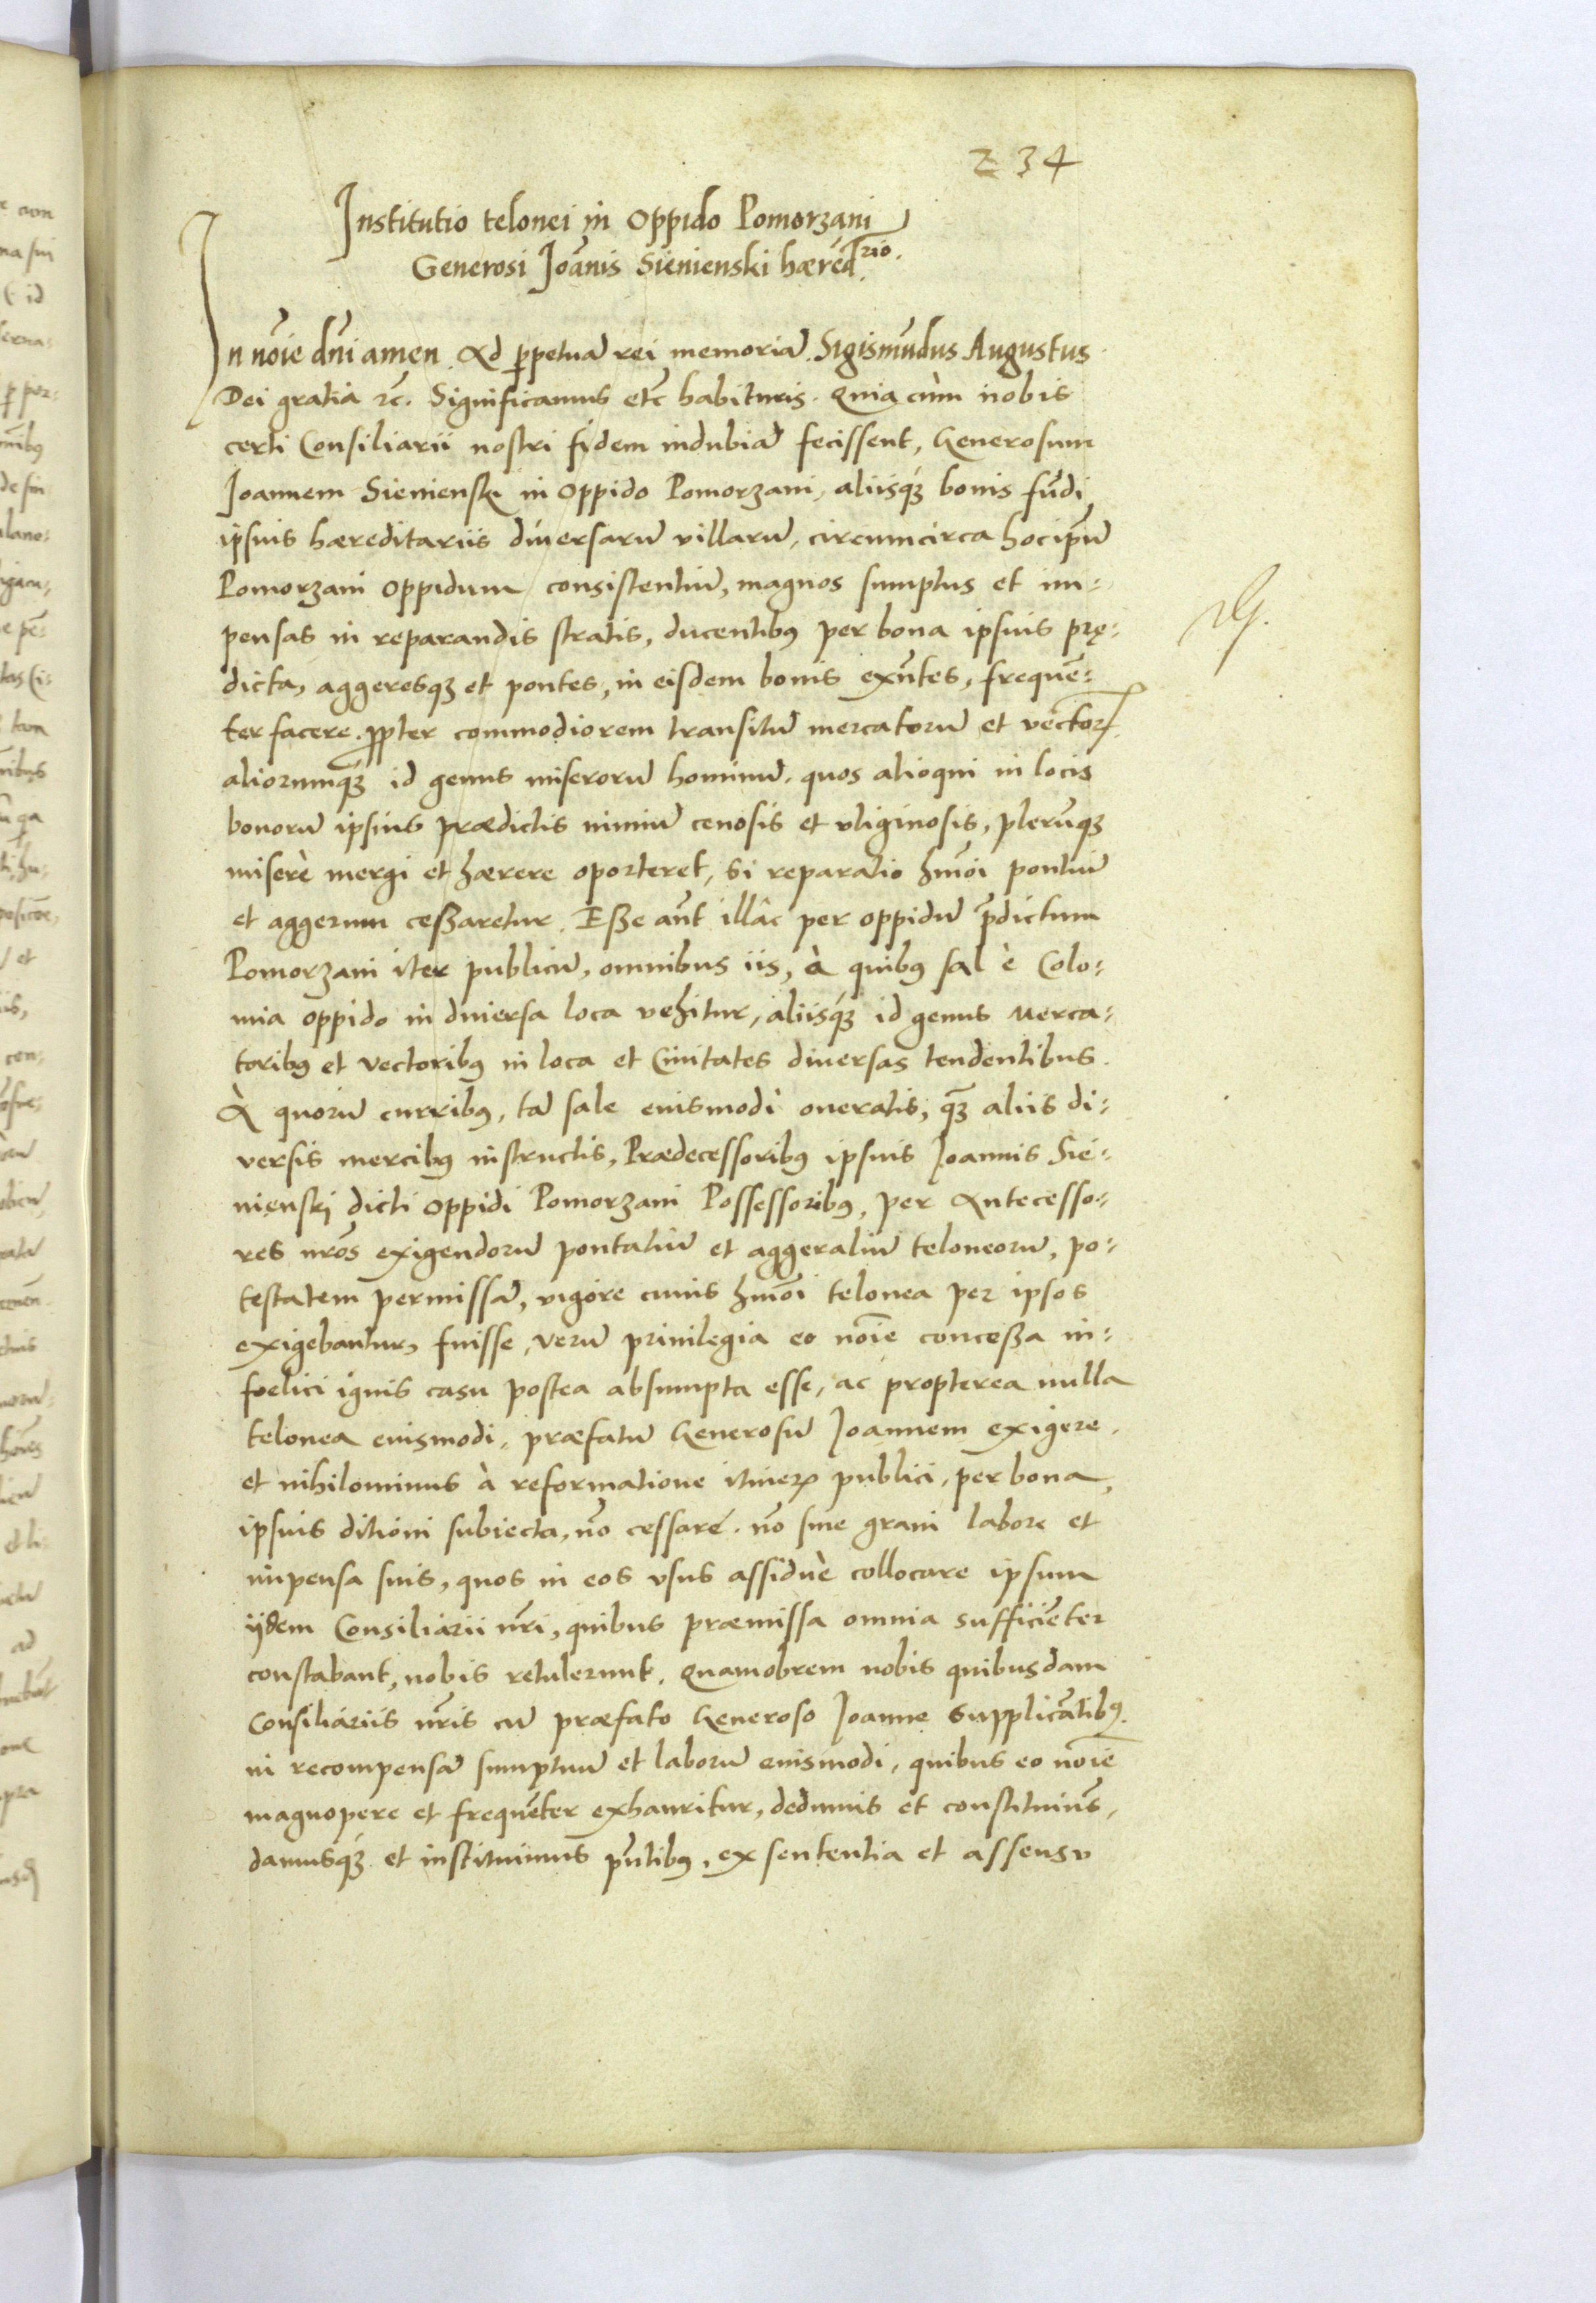 234
Institutio telonei in oppido Pomorzani
Generosi Joãnis Sienienski hæred.rio.
In nõie dñi amen. Ad ꝑpetuã rei memoriã. Sigismũdus Augustus
Dei gratia ꝛc. Significamus etc̃ habituris. Quia cùm nobis
certi Consiliarii nostri fidem indubiã fecissent, Generosum
Joannem Sienienski in oppido Pomorzani, aliisq́ꝫ bonis fũdi
ipsius hæreditariis diuersarũ villarũ, circumcirca hoc ip̃um
Pomorzani oppidum consistentiũ, magnos sumptus et im=
pensas in reparandis stratis, ducentibꝰ per bona ipsius prę=
dicta, aggeresqꝫ et pontes, in eisdem bonis exñtes, frequẽ=
ter facere. ꝓpter commodiorem transitũ mercatorũ et vectorꝝ
aliorumq́ꝫ id genus miserorũ hominũ. quos alioqui in locis
bonorũ ipsius prædictis nimiũ cenosis et vliginosis, plerũqꝫ
miserè mergi et hærere oporteret, si reparatio hm̃oi pontiũ
et aggerum ceßaretur. Eße aũt illâc per oppidũ p̃dictum
Pomorzani iter publicũ, omnibus iis, à quibꝰ sal è Colo=
mia oppido in diuersa loca vehitur, aliisq́ꝫ id genus merca=
toribꝰ et vectoribꝰ in loca et Ciuitates diuersas tendentibus.
A quorũ curribꝰ, tã sale eiusmodi oneratis, q̃ꝫ aliis di=
versis mercibꝰ instructis, Prædecessoribꝰ ipsius Joannis Sie=
nienski dicti oppidi Pomorzani Possessoribꝰ, per Antecesso=
res nr̃os exigendorũ pontaliũ et aggeraliũ teloneorũ, po=
testatem permissã, vigore cuius hm̃oi telonea per ipsos
exigebantur, fuisse, verũ priuilegia eo nõie conceßa in=
foelici ignis casu postea absumpta esse, ac propterea nulla
telonea eiusmodi, præfatũ Generosũ Joannem exigere.
et nihilominus à reformatione itinerꝝ publici, per bona
ipsius ditioni subiecta, nõ cessare. nõ sine graui labore et
impensa suis, quos in eos vsus assiduè collocare ipsum
ijdem Consiliarii nr̃i, quibus præmissa omnia sufficiẽter
constabant, nobis retulerunt. Quamobrem nobis quibusdam
Consiliariis nr̃is cũ præfato Generoso Joanne supplicãtibꝰ.
in recompensã sumptuũ et laborũ eiusmodi, quibus eo nõie
magnopere et frequẽter exhauritur, dedimus et constituimꝰ,
damusq́ꝫ et instituimus pñtibꝰ, ex sententia et assensu